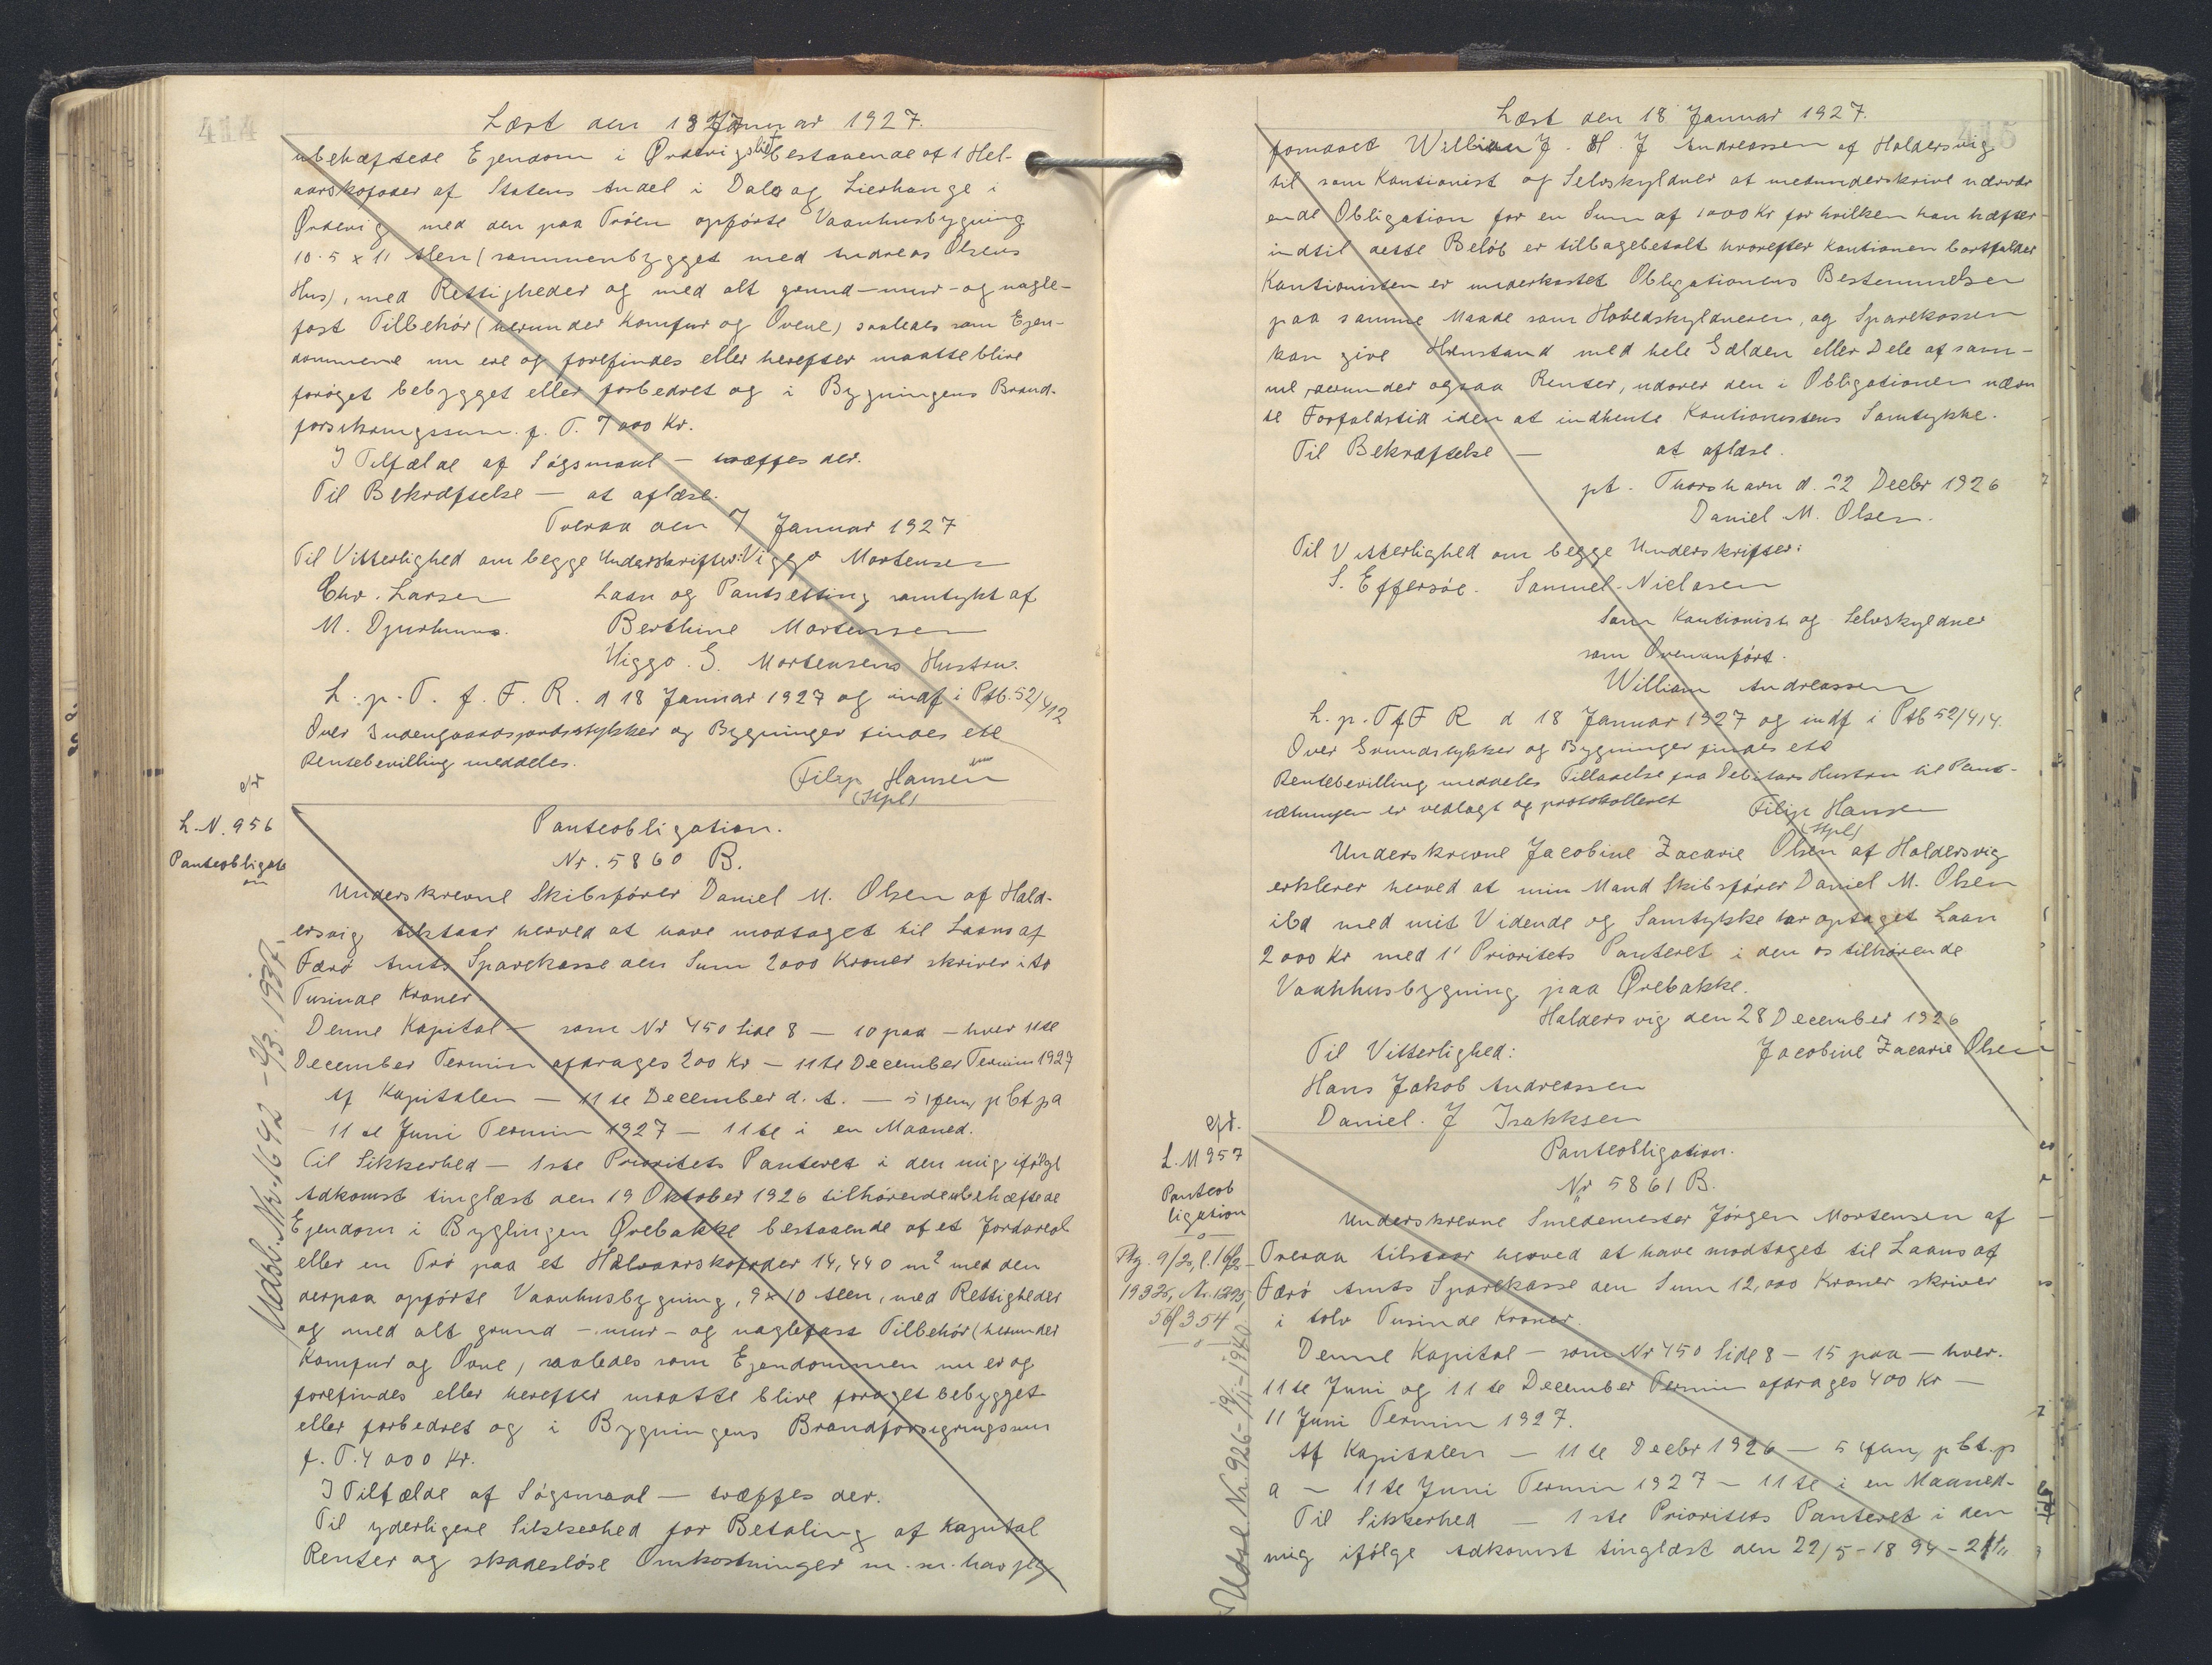 414
Læst den 18 Januar 1927.
ubehæftede Ejendom i Ørdevig bestaaende af 1 Hel-
aarskofoder af Statens Andel i Dals og Lierhauge i
Ørdevig med den paa Trøen opførte Vaanhusbygning
10.5 x 11 Alen (sammenbygget med Andreas Olsens
Hus), med Rettigheder og med alt grund-mur- og nagle-
fast Tilbehör (herunder Komfur og Ovene) saaledes som Ejen-
dommene nu ere og forefindes eller herefter maatte blive
forøget bebygget eller forbedret og i Bygningens Brand-
forsikringssum. f. T. 7000 Kr.
I Tilfælde af Søgsmaal — træffes der.
Til Bekræftelse — at aflæse.
Tveraa den 7 Januar 1927
Til Vitterlighed om begge Underskrifter: Viggo Mortensen
Chr. Larsen Laan og Pantsetting samtykt af
M. Djurhuus. Berthine Mortensen
Viggo. G. Mortensens Hustru.
L. p. T. f. F. R. d 18 Januar 1927 og indf i Ptb. 52/412
Over Indengaardsjordsstykker og Bygninger findes ete
Rentebevilling meddeles.
Filip Hansen
(Stpl)
L. N. 956
Panteobligati
on
Panteobligation.
Nr. 5860 B.
Underskrevne Skibsfører Daniel M. Olsen af Hald-
ersvig tilstaar herved at have modtaget til Laans af
Færö Amts Sparekasse den Sum 2000 Kroner skriver i to
Tusinde Kroner.
Denne Kapital — som Nr 450 Side 8 — 10 paa — hver 11te
December Termin afdrages 200 Kr — 11te December Termin 1927
Af Kapitalen — 11te December d. A. — 5 (fem) pCt pa
— 11te Juni Termin 1927 — 11te i en Maaned.
Til Sikkerhed — 1ste Prioritets Panteret i den mig ifølge
Adkomst tinglæst den 19 Oktober 1926 tilhörende ubehæftede
Ejendom i Byglingen Ørebakke bestaaende af et Jordareal
eller en Trø paa et Halvaarskofoder 14,440 m² med den
derpaa opførte Vaanhusbygning, 9 x 10 Alen, med Rettigheder
og med alt grund — mur — og naglefast Tilbehör (herunder
Komfur og Ovne), saaledes som Ejendommen nu er og
forefindes eller herefter maatte blive forøget bebygget
eller forbedret og i Bygningens Brandforsigringssum
f. T. 4000 Kr.
I Tilfælde af Søgsmaal — træffes der.
Til yderligere Sikkerhed for Betaling af Kapital
Renter og skadesløse Omkostninger m. m. har jeg
Udsl. Nr. 1642 - 2/3. 1937.
415
Læst den 18 Januar 1927.
formaaet William J. H. J Andreassen af Haldersvig
til som Kautionist og Selvskyldner at medunderskrive nærvær
ende Obligation for en Sum af 1000 Kr for hvilken han hæfter
indtil dette Beløb er tilbagebetalt hvorefter Kautionen bortfalder
Kautionisten er underkastet Obligationens Bestemmelser
paa samme Maade som Hobedskyldneren, og Sparekassen
kan give Henstand med hele Gælden eller Dele af sam-
me, derunder ogsaa Renter, udover den i Obligationen nævn
te Forfaldstid uden at indhente Kautionistens Samtykke.
Til Bekræftelse — at aflæse.
pt. Thorshavn d. 22 Decbr 1926
Daniel M. Olsen.
Til Vitterlighed om begge Underskrifter:
S. Effersöe. Samuel Nielasen
Som Kautionist og Selvskyldner
som Ovenanført.
William Andreassen
L. p. T f F R d 18 Januar 1927 og indf i Ptb 52/414.
Over Grundstykker og Bygninger findes ete
Rentebevilling meddeles Tilladelse fra Debitors Hustru til Pant-
sætningen er vedlagt og protokolleret Filip Hansen
(Stpl)
Underskrevne Jacobine Zacarie Olsen af Haldersvig
erklerer herved at min Mand Skibsfører Daniel M. Olsen
ibd med mit Vidende og Samtykke har optaget Laan
2000 Kr med 1' Prioritets Panteret i den os tilhørende
Vaanhusbygning paa Ørebakke.
Haldersvig den 28 December 1926
Til Vitterlighed: Jacobine Zacarie Olsen
Hans Jakob Andreassen
Daniel. J Isakksen
L. N 957
Panteob
ligation
Panteobligation.
Nr 5861 B.
Underskrevne Smedemester Jörgen Mortensen af
Tveraa tilstaar herved at have modtaget til Laans af
Færö Amts Sparekasse den Sum 12,000 Kroner skriver
i tolv Tusinde Kroner.
Denne Kapital — som Nr 450 Side 8 — 15 paa — hver.
11te Juni og 11te December Termin afdrages 400 Kr —
11 Juni Termin 1927.
Af Kapitalen — 11te Decbr 1926 — 5 (fem) pCt. p
a — 11te Juni Termin 1927 — 11te i en Maaned.
Til Sikkerhed — 1ste Prioritets Panteret i den
mig ifølge Adkomst tinglæst den 22/5 - 1894 -
56/354
Udsl. Nr. 926 - 19/11-1940